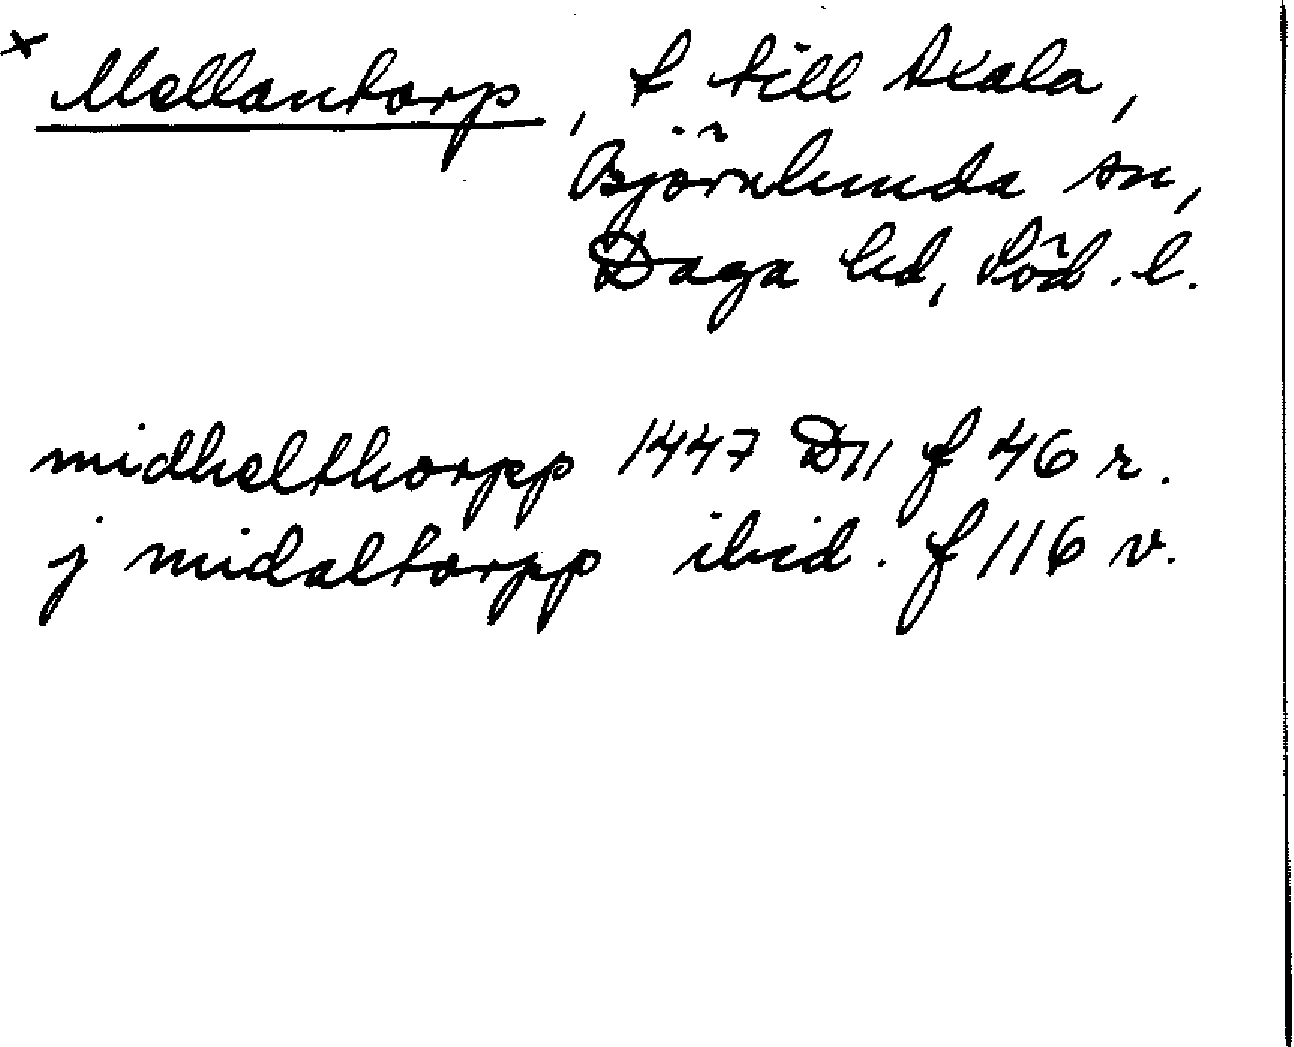 x Mellantorp, t till Skala,
Björnlunda sn,
Daga hd, Söd. l.
midhelthorpp 1447 D11 f 46 r.
j midaltorpp ibid. f 116 v.